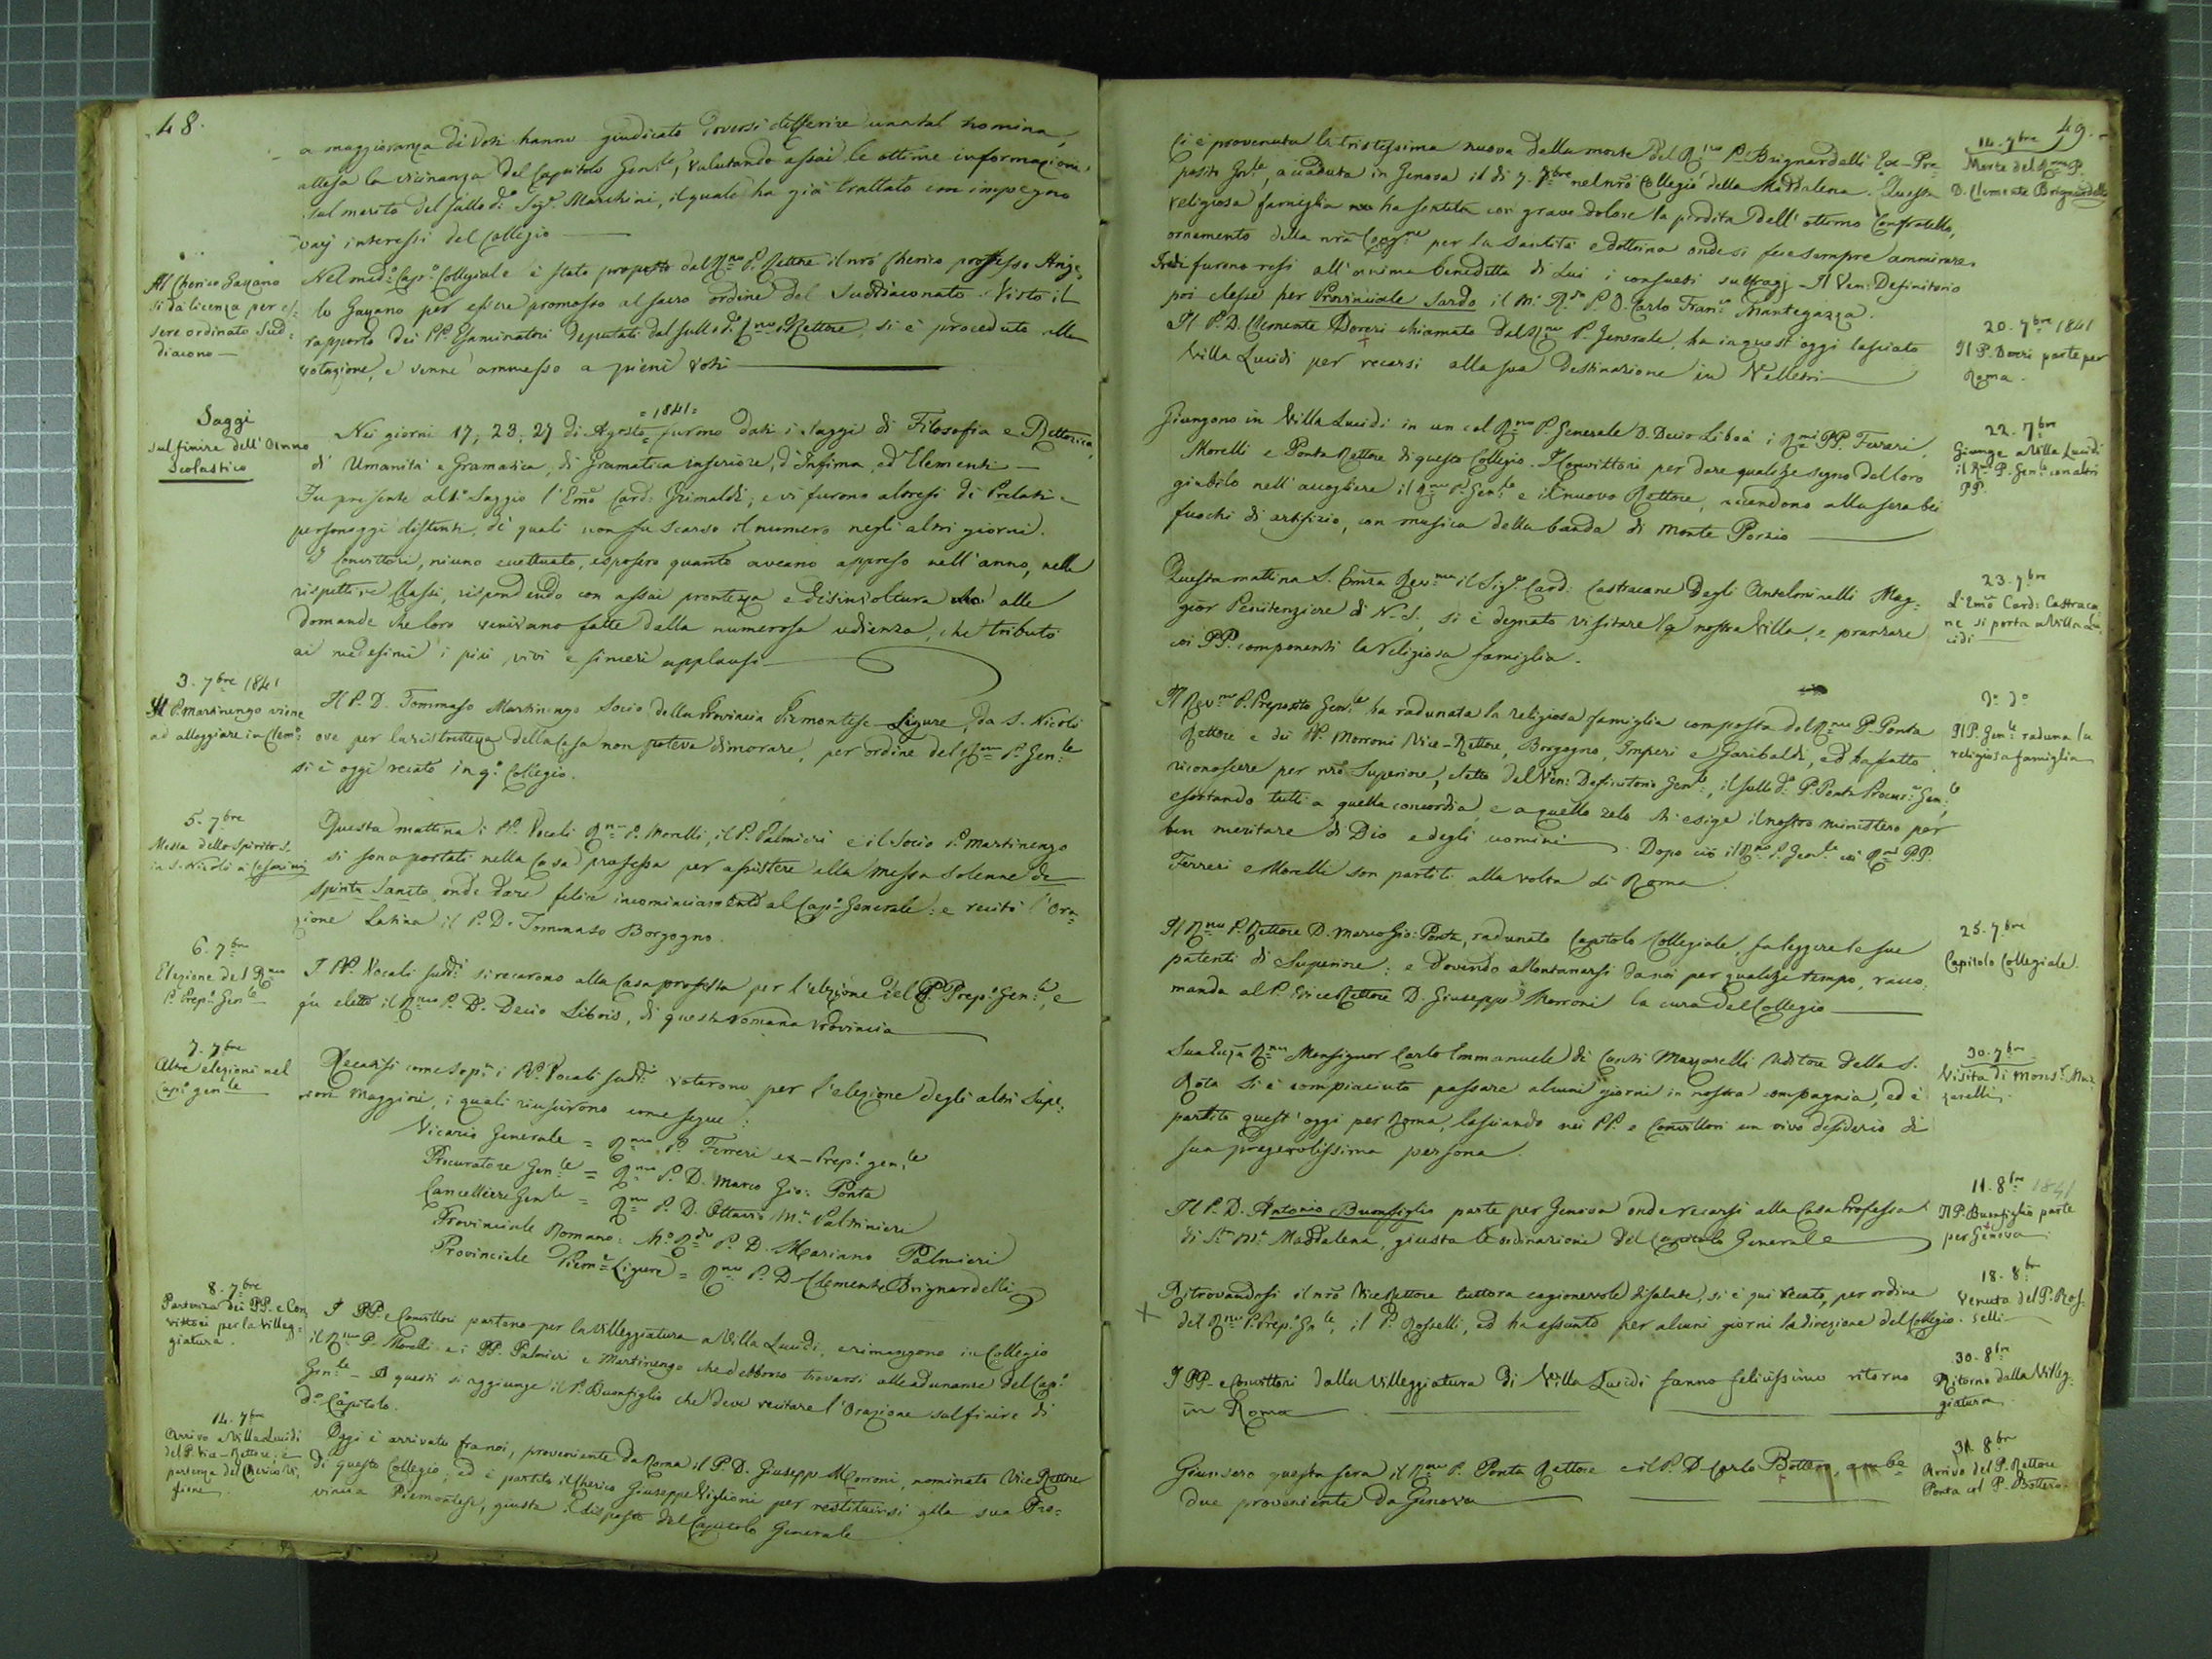 48.
a maggioranza di Voti hanno giudicato doversi differire una tal nomina,
attesa la vicinanza del Capitolo Gen.le, valutando assai le ottime informazioni
sul merito del sullod.o Sig.r Marchini, il quale ha già trattato con impegno
varj interessi del Collegio
Al Cherico Gazzano
si dà licenza per es=
sere ordinato Sud=
diacono
Nel med.o Cap.o Collegiale è stato proposto dal R.mo P. Rettore il nrô Cherico professo Ange=
lo Gazzano per essere promosso al sacro ordine del Suddiaconato. Visto il
rapporto dei PP. Esaminatori deputati dal sullod.o R.mo P. Rettore, si è proceduto alla
votazione, e venne ammesso a pieni voti
Saggi
sul finire dell'Anno
Scolastico
= 1841 =
Nei giorni 17, 23, 27 di Agosto furono dati i saggi di Filosofia e Rettorica,
di Umanità e Gramatica, di Gramatica inferiore, d'Infima, ed Elementi
Fu presente al 1.o Saggio l'Emo Card: Grimaldi; e vi furono altresì di Prelati e
personaggi distinti, de' quali non fu scarso il numero negli altri giorni.
I Convittori, niuno eccettuato, esposero quanto aveano appreso nell'anno, nelle
rispettive Classi, rispondendo con assai prontezza e disinvoltura alle
domande che loro venivano fatte dalla numerosa udienza, che tributò
ai medesimi i più vivi e sinceri applausi
3. 7bre 1841
Il P. Martinengo viene
ad alloggiare in Clem.o
Il P. D. Tommaso Martinengo Socio della Provincia Piemontese-Ligure, da S. Nicolò
ove per la ristrettezza della Casa non poteva dimorare, per ordine del R.mo P. Gen.le
si è oggi recato in q.o Collegio.
5. 7bre
Messa dello Spirito S.
in S. Nicolò a' Cesarini
Questa mattina i PP. Vocali R.mo P. Morelli, il P. Palmieri e il Socio P. Martinengo
si sono portati nella Casa professa per assistere alla messa solenne de
Spiritu Sancto, onde dare felice incominciamento al Cap.o Generale: e recitò l'Ora=
zione Latina il P. D. Tommaso Borgogno.
6. 7bre
Elezione del R.mo
P. Prep.o Gen.le
I PP. Vocali sudd.i si recarono alla Casa professa per l'elezione del P. Prep.o Gen.le, e
fu eletto il R.mo P. D. Decio Libois, di questa romana Provincia
7. 7bre
Altre elezioni nel
Cap.o gen.le
Recatisi come sop.a i PP. Vocali sudd.i votarono per l'elezione degli altri Supe=
riori Maggiori, i quali riuscirono come segue:
Vicario Generale = R.mo P. Ferreri ex-Prep.o gen.le
Procuratore Gen.le = R.mo P. D. Marco Gio: Ponta
Cancelliere Gen.le = R.mo P. D. Ottavio M.a Paltrinieri
Provinciale Romano: M.o R.do P. D. Mariano Palmieri
Provinciale Piem.e Ligure = R.mo P. D. Clemente Brignardelli
8. 7bre
Partenza dei PP. e Con=
vittori per la Villeg=
giatura.
I PP. e Convittori partono per la Villeggiatura a Villa Lucidi, e rimangono in Collegio
il R.mo P. Morelli e i PP. Palmieri e Martinengo che debbono trovarsi alle adunanze del Cap.o
Gen.le - A questi si aggiunge il P. Buonfiglio che deve recitare l'Orazione sul finire di
d.o Capitolo.
14. 7bre
Arrivo a Villa Lucidi
del P. Vice-Rettore, e
partenza del Cherico Vi=
glione
Oggi è arrivato fra noi, proveniente da Roma il P. D. Giuseppe Morroni, nominato Vice Rettore
di questo Collegio; ed è partito il Cherico Giuseppe Viglioni per restituirsi alla sua Pro=
vincia Piemontese, giusta il disposto del Capitolo Generale
49.
14. 7bre
Morte del R.mo P.
D. Clemente Brignardelli
Ci è provenuta la tristissima nuova della morte del R.mo P. Brignardelli Ex-Pre=
posito Gn.le, accaduta in Genova il dì 7. 7bre nel nrô Collegio della Maddalena. Questa
religiosa famiglia ha sentita con grave dolore la perdita dell'ottimo Confratello,
ornamento della nrâ Cong.ne per la santità e dottrina onde si fece sempre ammirare.
Indi furono resi all'anima benedetta di Lui i consueti suffragj - Il Ven: Definitorio
poi elesse per Provinciale Sardo il M. R.do P. D. Carlo Fran.o Mantegazza.
20. 7bre 1841
Il P. Doveri parte per
Roma.
Il P. D. Clemente Doveri chiamato dal R.mo P. Generale, ha in quest'oggi lasciato
Villa Lucidi per recarsi alla sua destinazione in Velletri
22. 7bre
Giunge a Villa Lucidi
il R.mo P. Gen.le con altri
PP.
Giungono in Villa Lucidi in un col R.mo P. Generale D. Decio Libois i R.mi PP. Ferreri,
Morelli e Ponta Rettore di questo Collegio. I Convittori per dare qualche segno del loro
giubilo nell'accogliere il R.mo P. Gen.le e il nuovo Rettore, accendono alla sera bei
fuochi di artifizio, con musica della banda di Monte Porzio
23. 7bre
L'Emo Card: Castraca=
ne si porta a Villa Lu=
cidi
Questa mattina S. Emza Rev.ma il Sig.r Card: Castracane degli Antelminelli Mag=
gior Penitenziere di N. S., si è degnato visitare la nostra Villa, e pranzare
coi PP. componenti la Religiosa famiglia.
d.o d.o
Il P. Gen.le raduna la
religiosa famiglia
Il Rev.mo P. Preposito Gen.le ha radunata la religiosa famiglia composta del R.mo P. Ponta
Rettore e dei PP. Morroni Vice-Rettore, Borgogno, Imperi e Garibaldi, ed ha fatto
riconoscere per nrô Superiore, eletto dal Ven: Definitorio Gen.le, il sullod.o P. Ponta Procur.e Gen.le
esortando tutti a quella concordia, e a quello zelo che esige il nostro ministero per
ben meritare di Dio e degli uomini. Dopo ciò il R.mo P. Gen.le coi R.mi PP.
Ferreri e Morelli son partiti alla volta di Roma.
25. 7bre
Capitolo Collegiale.
Il R.mo P. Rettore D. Marco Gio: Ponta, radunato Capitolo Collegiale, fa leggere le sue
patenti di Superiore: e dovendo allontanarsi da noi per qualche tempo, racco=
manda al P. ViceRettore D. Giuseppe Morroni la cura del Collegio
30. 7bre
Visita di Mons.r Muz=
zarelli
Sua Ecza R.ma Monsignor Carlo Emmanuele di Conti Muzzarelli Uditore della S.
Rota si è compiaciuto passare alcuni giorni in nostra compagnia, ed è
partito quest'oggi per Roma, lasciando nei PP. e Convittori un vivo desiderio di
sua pregevolissima persona.
11. 8bre 1841
Il P. Buonfiglio parte
per Genova
Il P. D. Antonio Buonfiglio parte per Genova onde recarsi alla Casa Professa
di S.ta M.a Maddalena, giusta le ordinazioni del Capitolo Generale
18. 8bre
Venuta del P. Ros=
selli
Ritrovandosi il nrô ViceRettore tuttora cagionevole di salute, si è qui recato, per ordine
del R.mo P. Prep.o Gn.le, il P. Rosselli, ed ha assunto per alcuni giorni la direzione del Collegio.
30. 8bre
Ritorno dalla Villeg=
giatura
I PP. e Convittori dalla Villeggiatura di Villa Lucidi fanno felicissimo ritorno
in Roma
31. 8bre
Arrivo del P. Rettore
Ponta col P. Bottero.
Giunsero questa sera il R.mo P. Ponta Rettore e il P. D. Carlo Bottero, ambe=
due proveniente da Genova